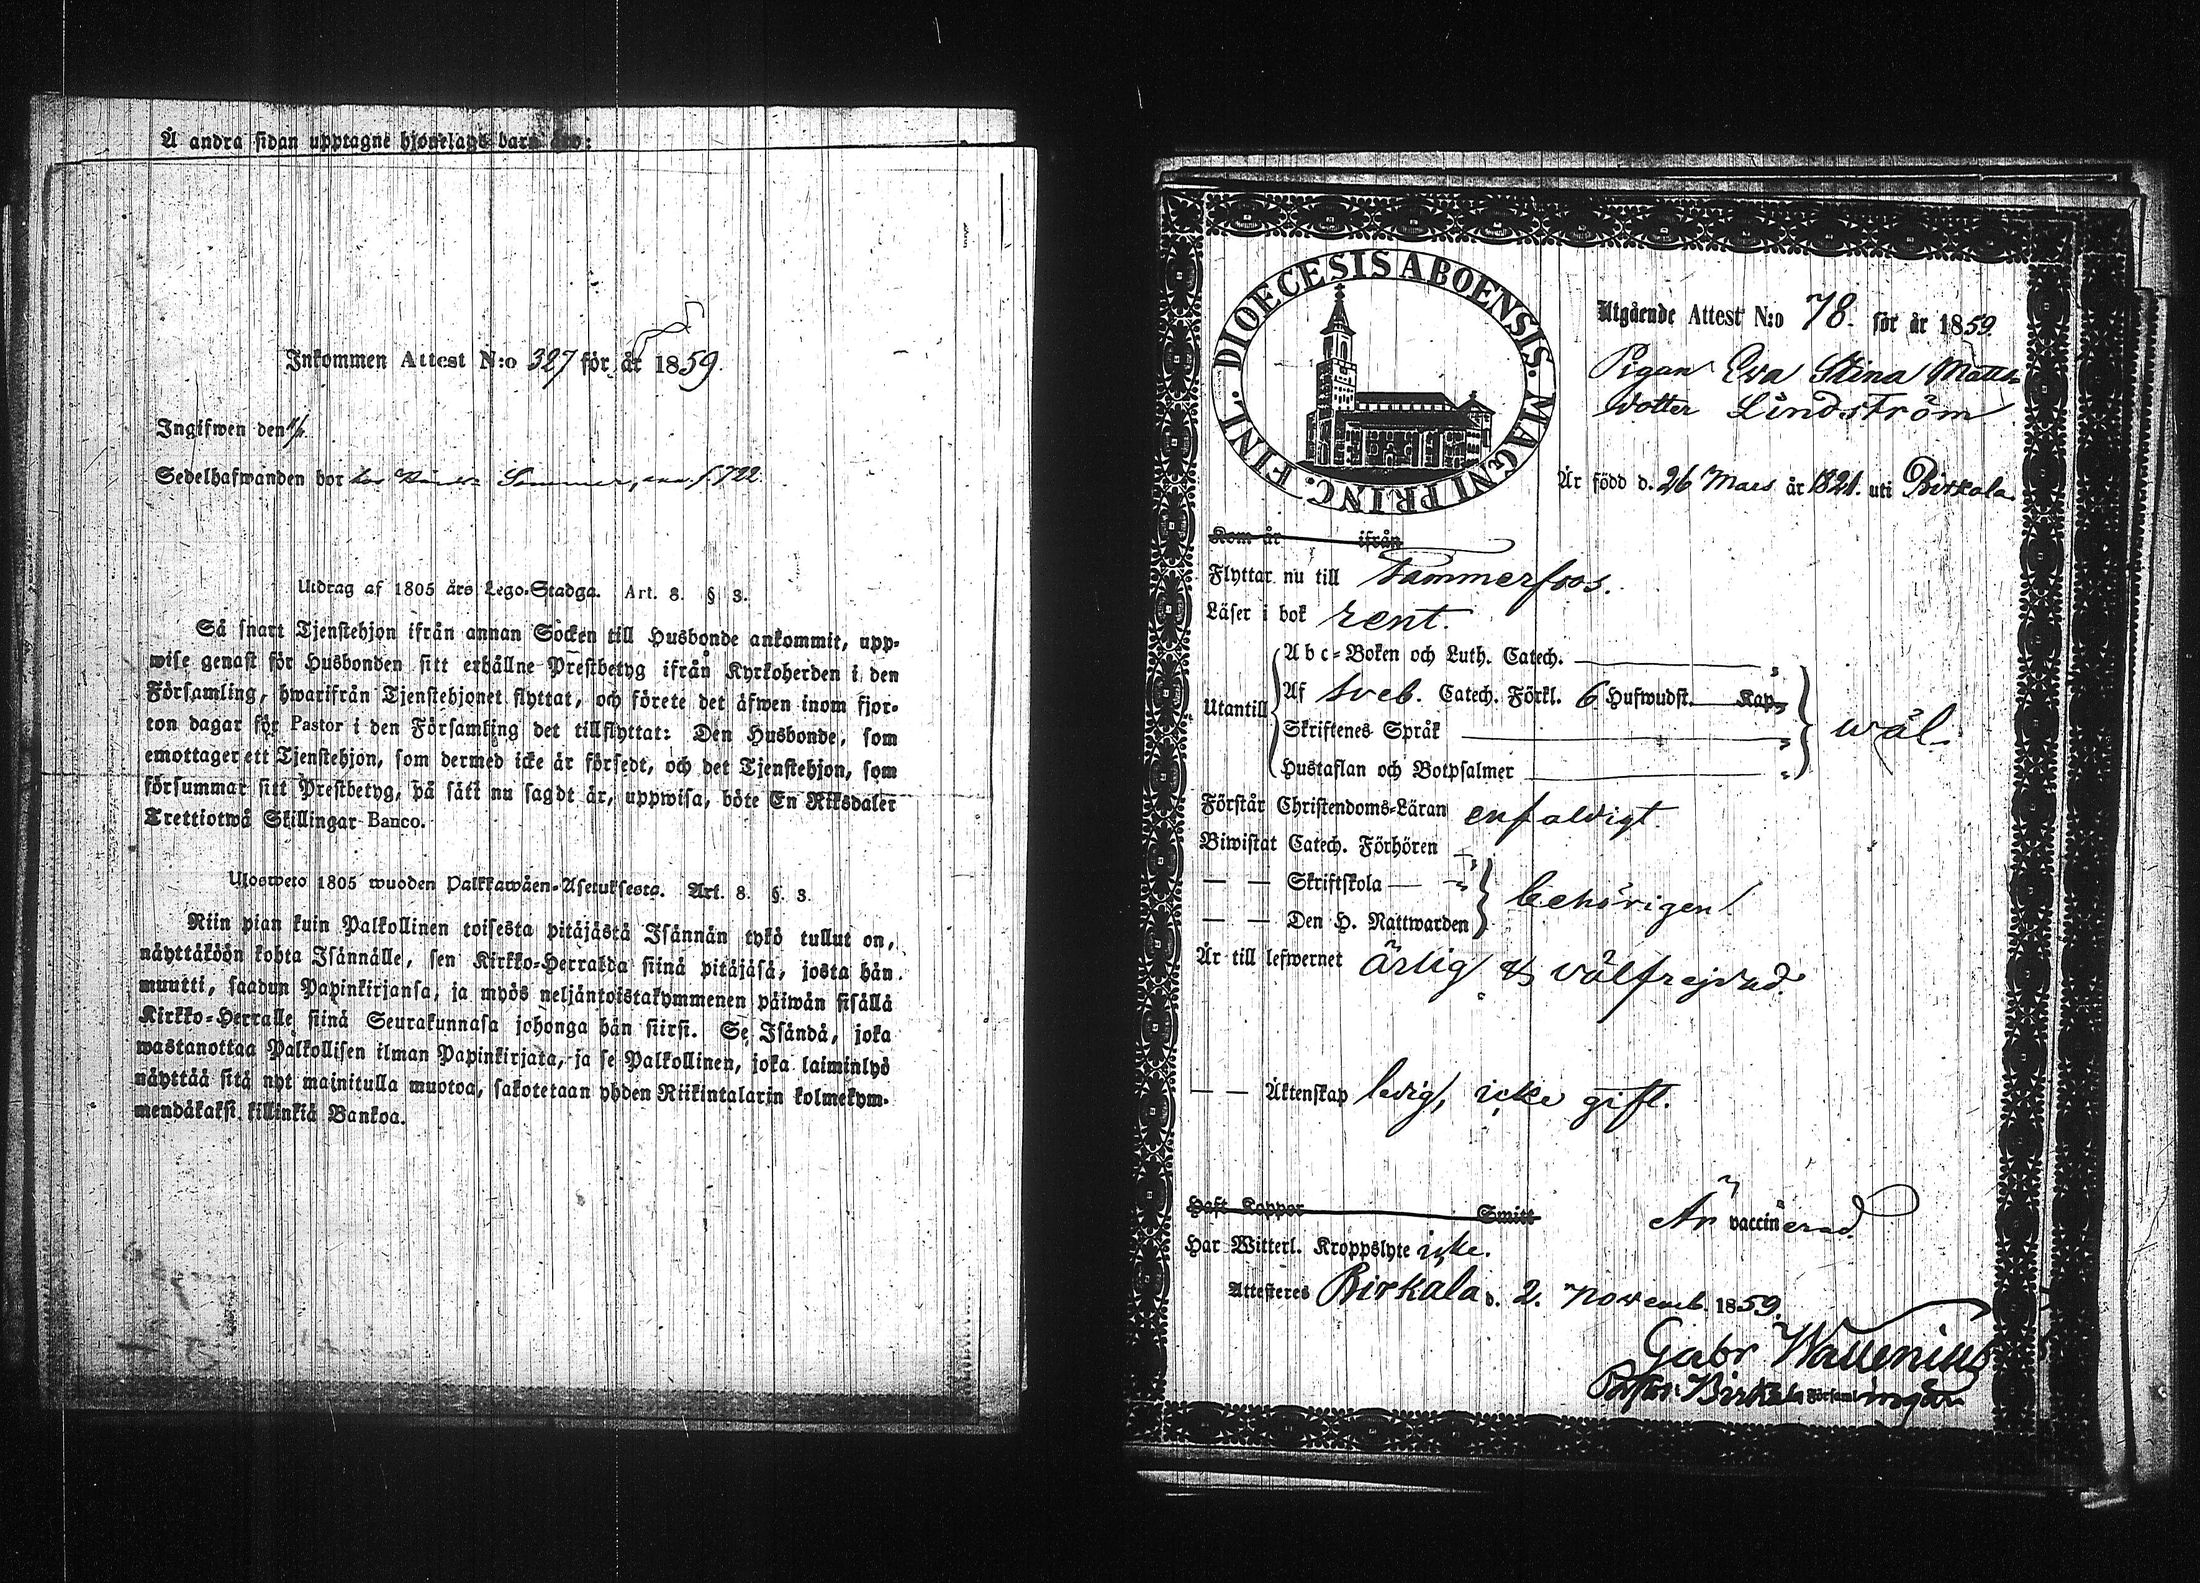 Å andra sidan upptagne hjonelags barn äro:
Inkommen Attest N:o 327 för år 1859.
Ingifwen den
Sedelhafwanden bor hos
Utdrag af 1805 års Lego-Stadga. Art. 8. § 3.
Så snart Tjenstehjon ifrån annan Socken till Husbonde ankommit, upp-
wise genast för Husbonden sitt erhållne Prestbetyg ifrån Kyrkoherden i den
Församling, hwarifrån Tjenstehjonet flyttat, och förete det äfwen inom fjor-
ton dagar för Pastor i den Församling det tillflyttat: Den Husbonde, som
emottager ett Tjenstehjon, som dermed icke är försedt, och det Tjenstehjon, som
försummar sitt Prestbetyg, på sätt nu sagdt är, uppwisa, böte En Riksdaler
Trettiotwå Skillingar Banco.
Ulosweto 1805 wuoden Palkkawäen-Asetuksesta. Art. 8. §. 3.
Niin pian kuin Palkollinen toisesta pitäjästä Isännän tykö tullut on,
näyttäköön kohta Isännälle, sen Kirkko-Herralda siinä pitäjäsä, josta hän
muutti, saadun Papinkirjansa, ja myös neljäntoistakymmenen päiwän sisällä
Kirkko-Herralle siinä Seurakunnasa johonga hän siirsi. Se Isändä, joka
wastanottaa Palkollisen ilman Papinkirjata, ja se Palkollinen, joka laiminlyö
näyttää sitä nyt mainitulla muotoa, sakotetaan yhden Riikintalarin kolmekym-
mendäkaksi killinkiä Bankoa.
DIOECESIS ABOENSIS. MAGNI PRINC. FINL.
Utgående Attest N:o 78. för år 1859.
Pigan Eva Stina Matts
dotter Lindström
Är född d. 26 Mars år 1821. uti Birkala.
Kom år ifrån
Flyttar nu till Tammerfors.
Läser i bok rent.
Abc-Boken och Luth. Catech.
Utantill Af Sveb. Catech. Förkl. 6 Hufwudst. Kap.
Skriftenes Språk wäl.
Hustaflan och Botpsalmer
Förstår Christendoms-Läran enfaldigt.
Biwistat Catech. Förhören
— — Skriftskola — behörigen
— — Den H. Nattwarden
Är till lefwernet ärlig & välfrejdad.
— — Äktenskap ledig, icke gift.
Haft Koppor Smitt
Är vaccinerad.
Har Witterl. Kroppslyte icke.
Attesteres Birkala d. 2. Novemb. 1859.
Gabr Wallenius
Pastor i Birkala Församlingar